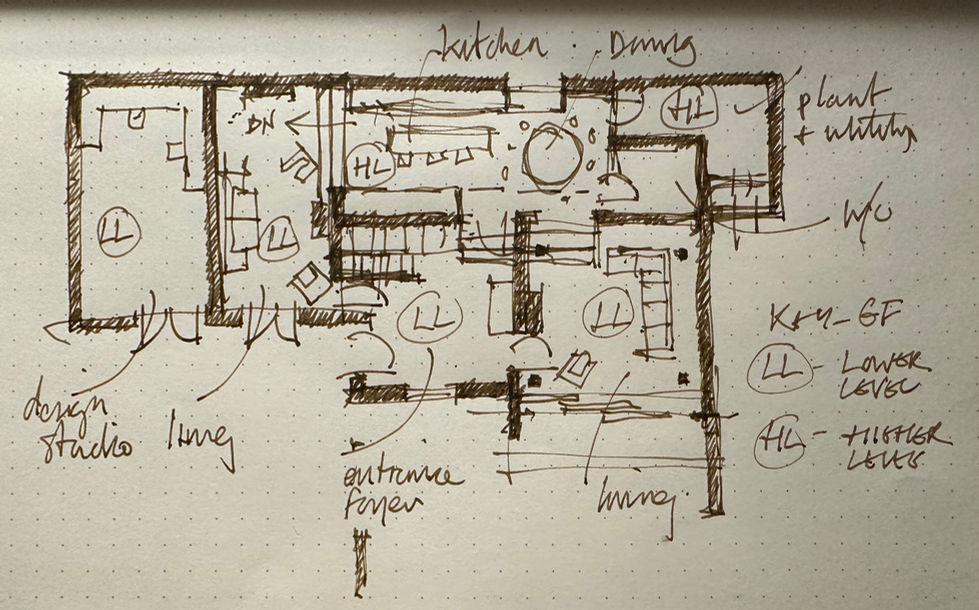 kitchen . Dining
DN
HL
HL
plant
+ utility
LL
LL
W/C
LL
LL
Key_GF
LL - LOWER
LEVEL
HL - HIGHER
LEVEL
design
studio
living
entrance
foyer
living